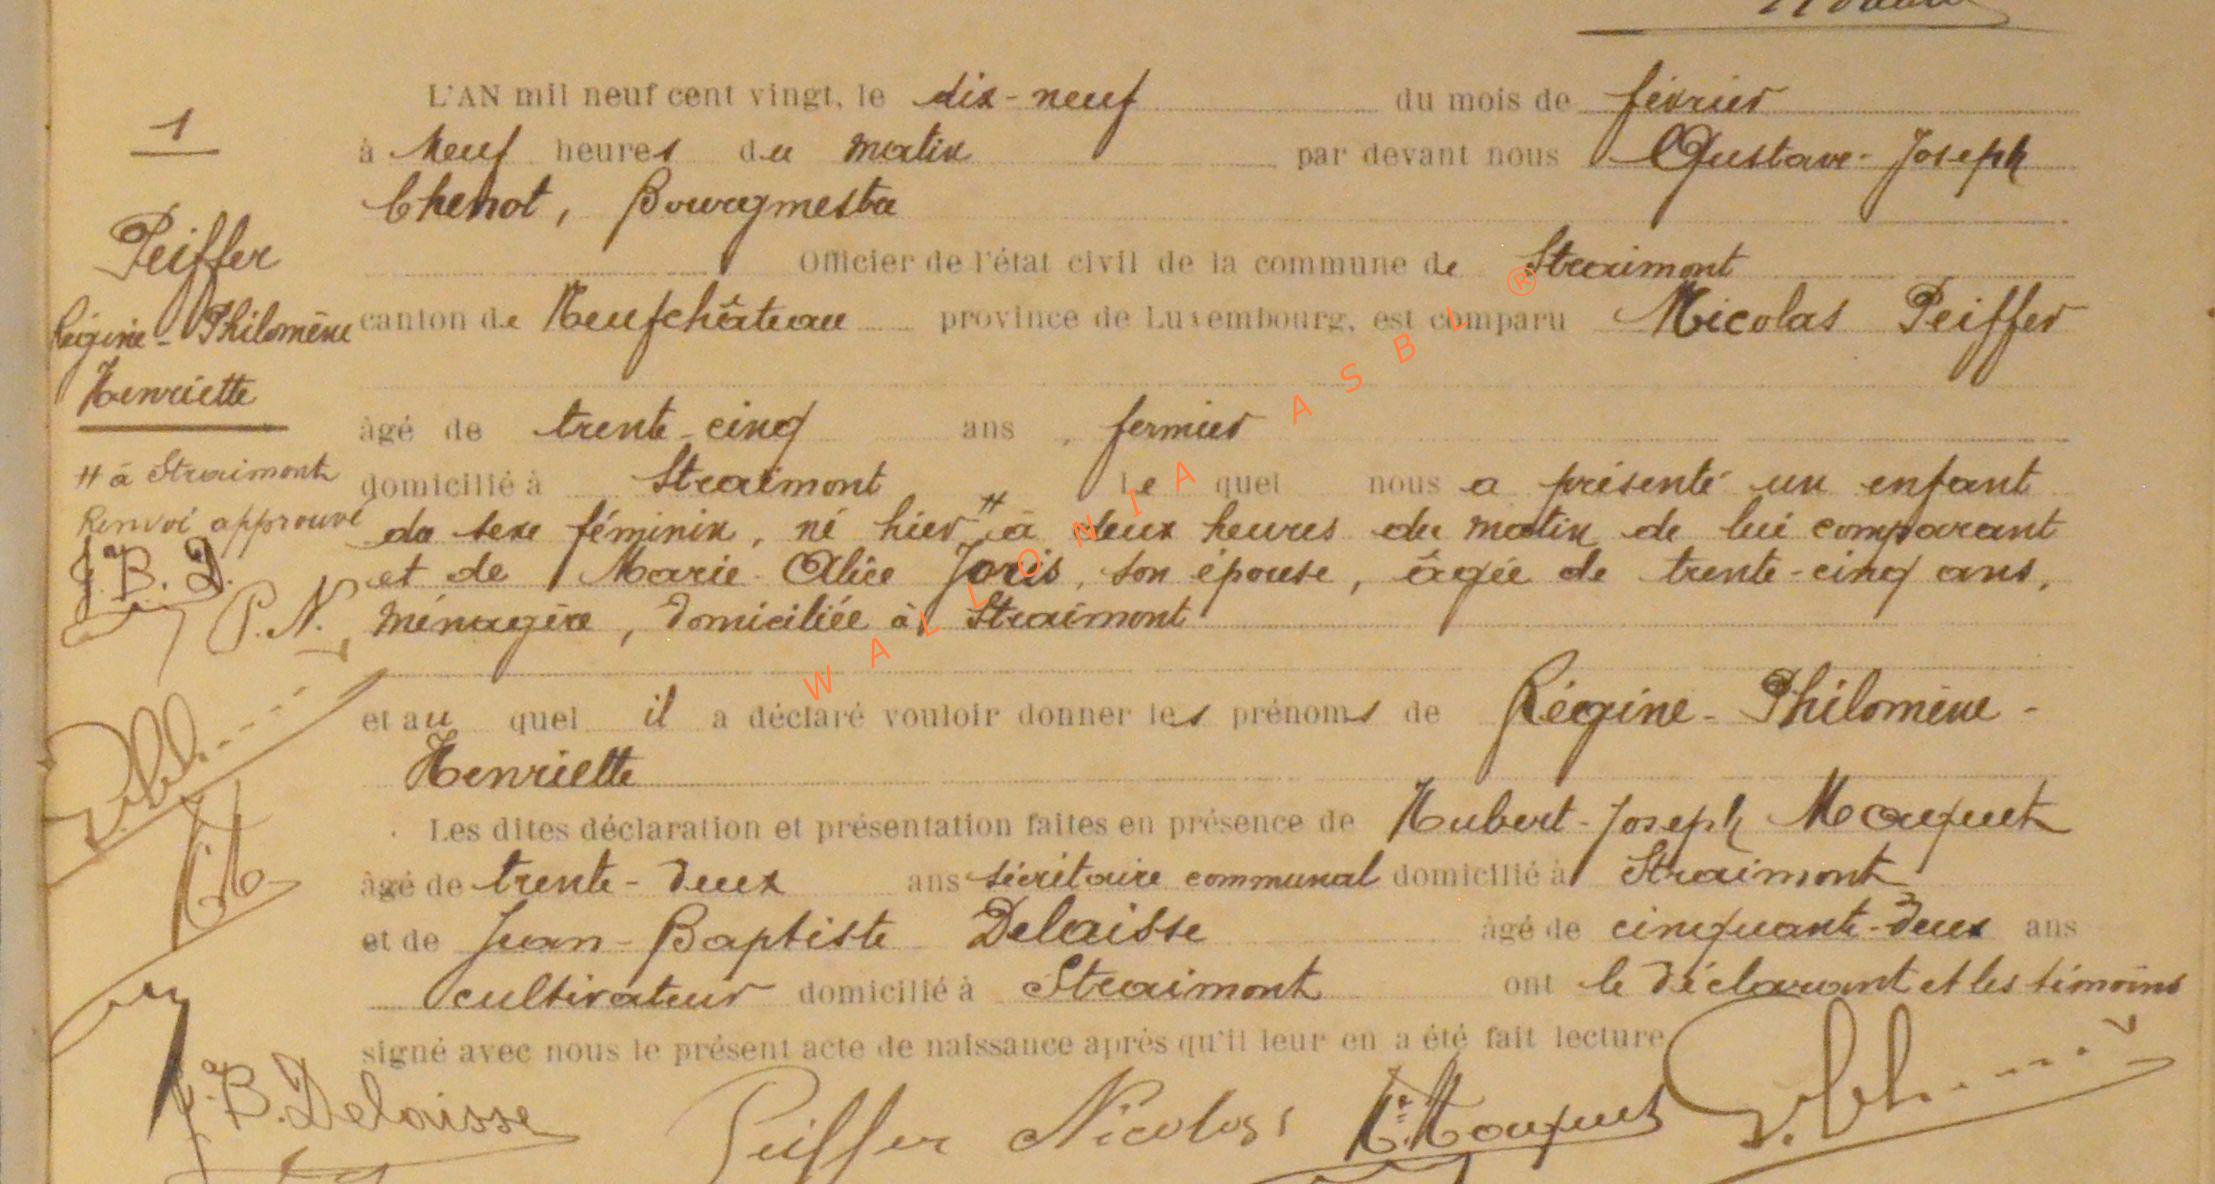 1
Peiffer
Régine-Philomène
Henriette
# à Straimont
Renvoi approuvé
J. B. D.
P. N.
L'AN mil neuf cent vingt, le dix-neuf du mois de février
à neuf heures du matin par devant nous Gustave-Joseph
Chenot, Bourgmestre
Officier de l'état civil de la commune de Straimont
canton de Neufchâteau province de Luxembourg, est comparu Nicolas Peiffer
âgé de trente-cinq ans, fermier
domicilié à Straimont lequel nous a présenté un enfant
du sexe féminin, né hier # à deux heures du matin de lui comparant
et de Marie-Alice Joris, son épouse, âgée de trente-cinq ans,
ménagère, domiciliée à Straimont
et auquel il a déclaré vouloir donner les prénoms de Régine-Philomène-
Henriette
Les dites déclaration et présentation faites en présence de Hubert-Joseph Maquet
âgé de trente-deux ans secrétaire communal domicilié à Straimont
et de Jean-Baptiste Delaisse âgé de cinquante-deux ans
cultivateur domicilié à Straimont ont le déclarant et les témoins
signé avec nous le présent acte de naissance après qu'il leur en a été fait lecture
J. B. Delaisse Peiffer Nicolas
WALLONIA ASBL ®